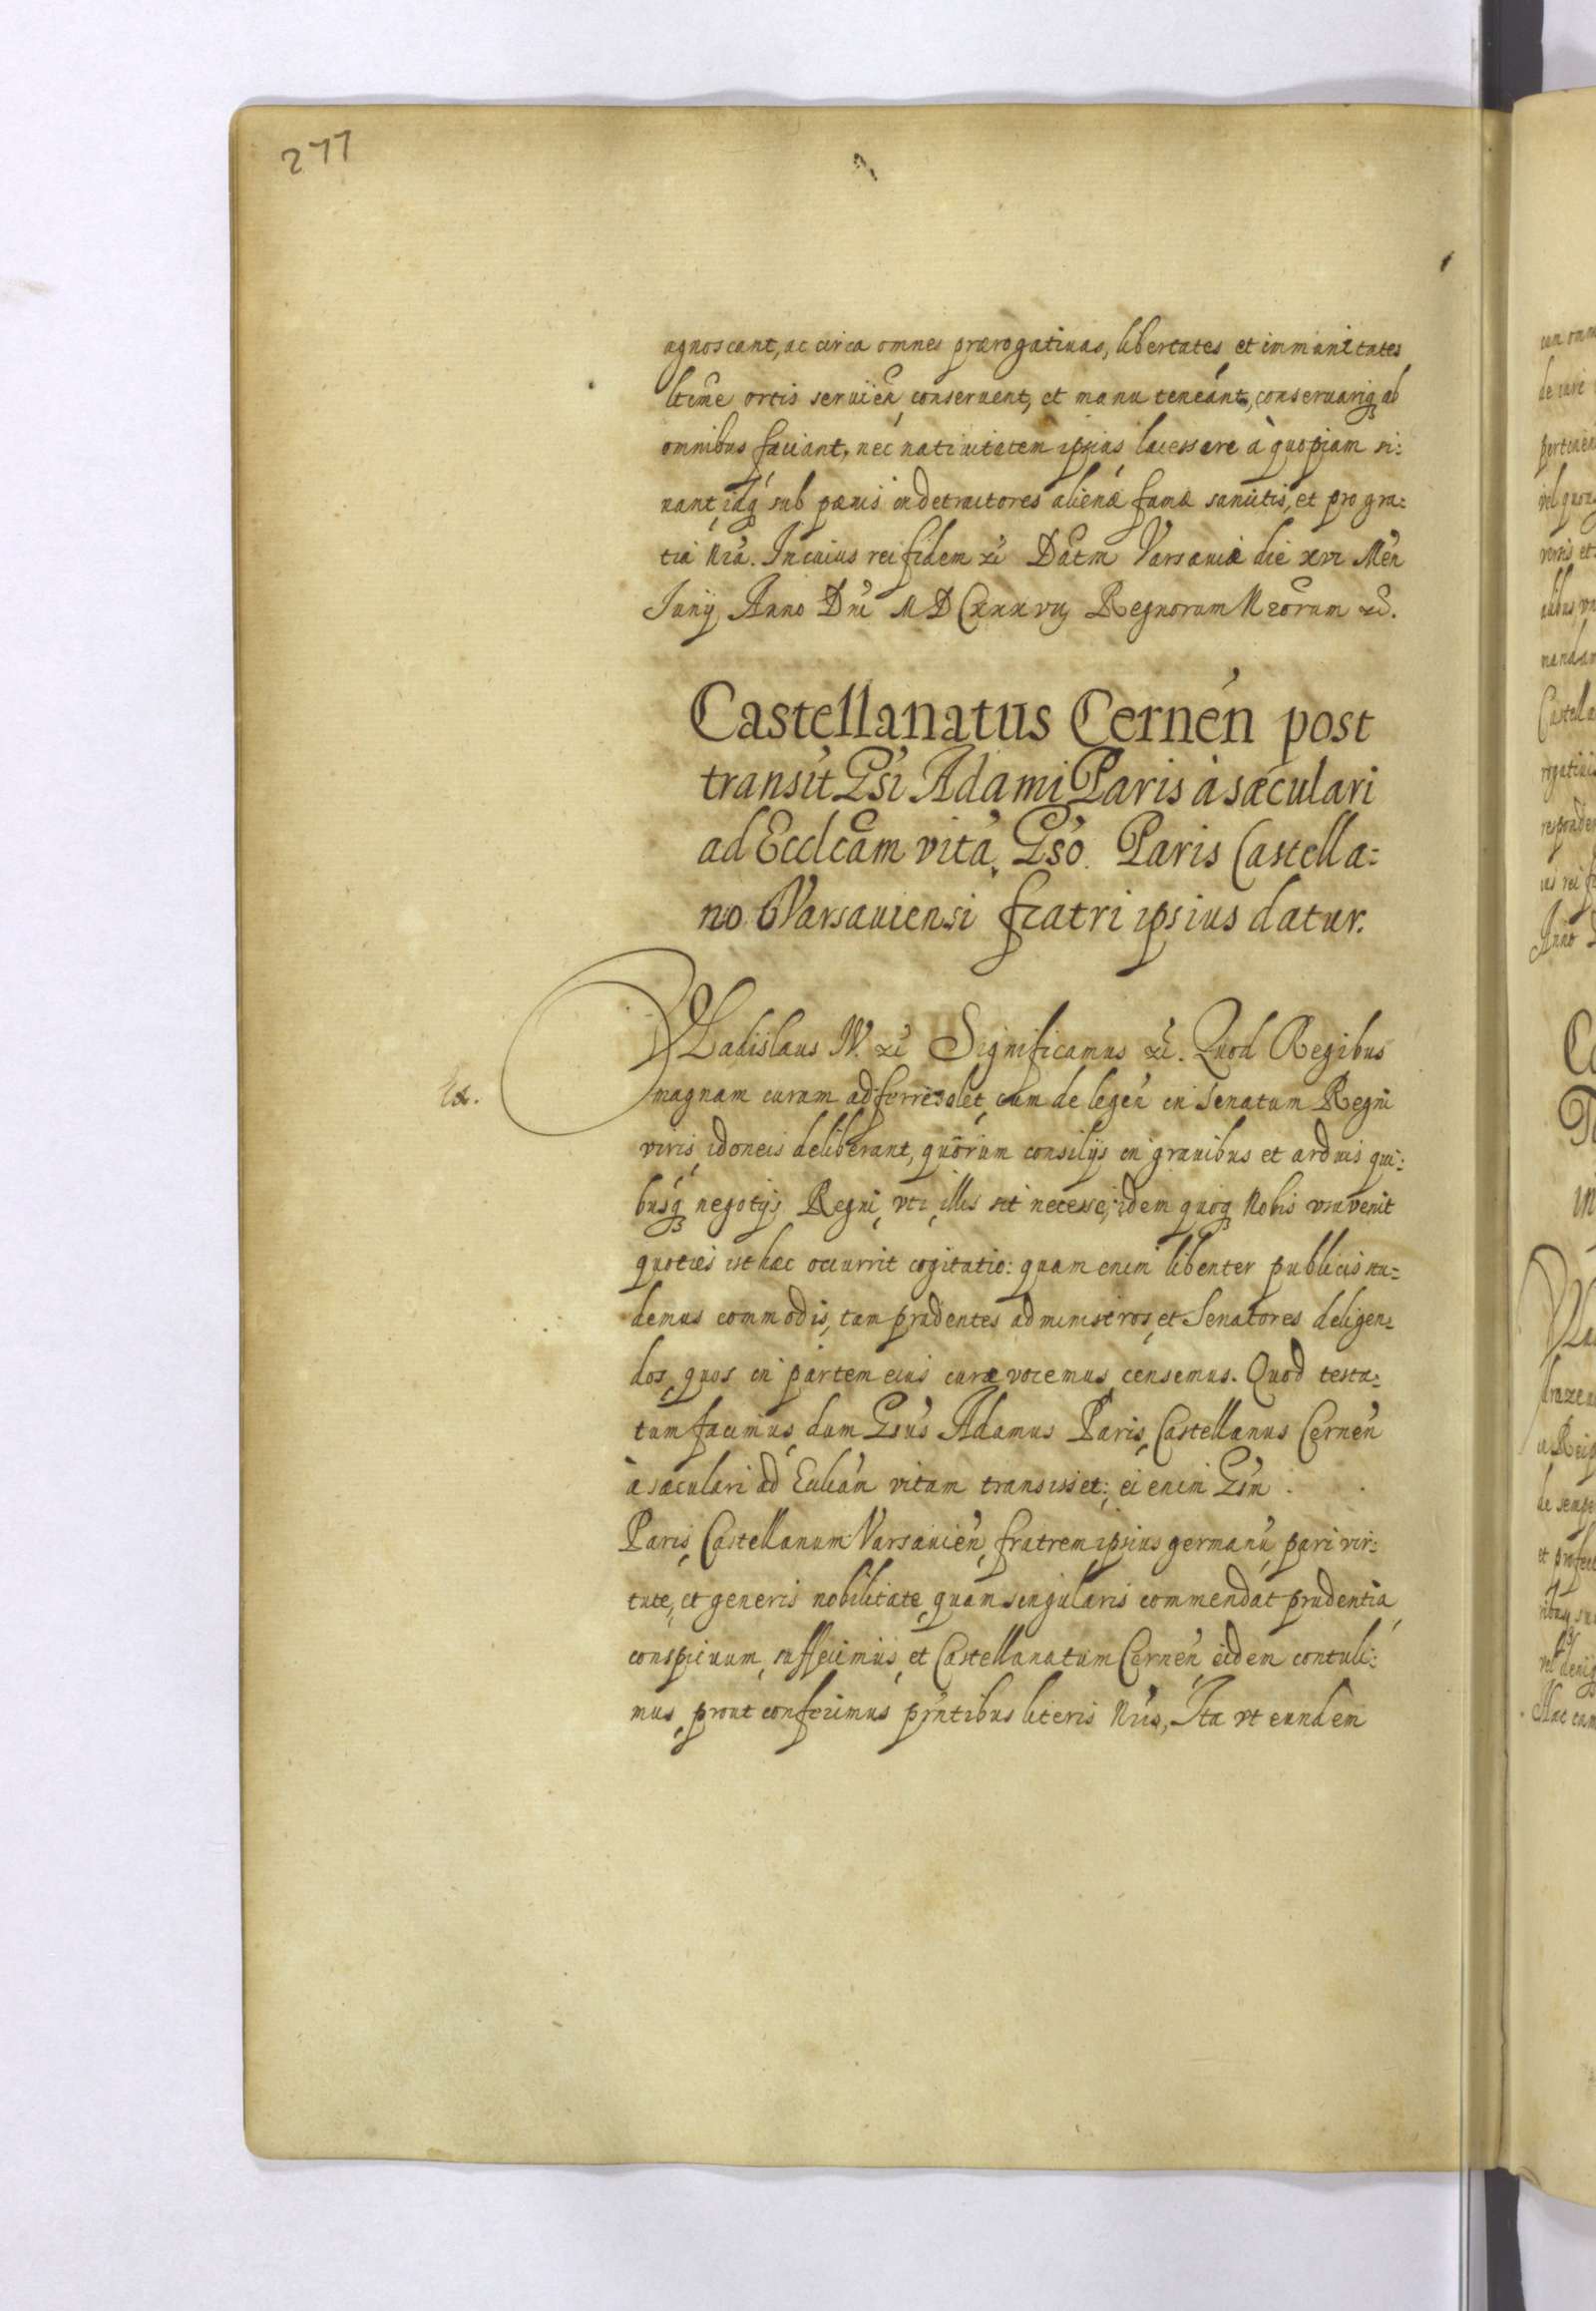 277
agnoscant, ac circa omnes prærogatiuas, libertates et immunitates
ltime ortis seruień, conseruent, et manu teneant, conseruariq; ab
omnibus faciant, nec natiuitatem ipsius lacessere à quopiam si:
nant, idq; sub pænis in detractores alienæ famæ sancitis, et pro gra:
tia nra. In cuius rei fidem etc Datm Varsauiæ die xvi Men
Junij Anno Dni MDCxxxvij Regnorum Nrorum etc.
Castellanatus Cerneń post
transit Gsi Adami Paris à sæculari
ad Ecclcam vitã, Gso. Paris Castella:
no Varsauiensi fratri ipsius datur.
Ex.
Vladislaus IV. etc Significamus etc. Quod Regibus
magnam curam adferre solet, cum de legeń in Senatum Regni
viris idoneis deliberant, quorum consilijs in grauibus et arduis qui:
busq; negotijs Regni, vti illis sit necesse, idem quoq; Nobis vsu venit
quoties isthæc occurrit cogitatio: quam enim libenter publicis stu=
demus commodis, tam prudentes administros, et Senatores deligen=
dos, quos in partem eius curæ vocemus, censemus. Quod testa:
tum facimus, dum Gsus Adamus Paris, Castellanus Cerneń
à sæculari ad Eccliam vitam transisset: ei enim Gsm
Paris, Castellanum Varsauień, fratrem ipsius germanũ, pari vir:
tute, et generis nobilitate, quam singularis commendat prudentia
conspicuum, suffecimus, et Castellanatum Cerneń eidem contuli:
mus, prout conferimus pntibus literis Nris, Ita vt eundem